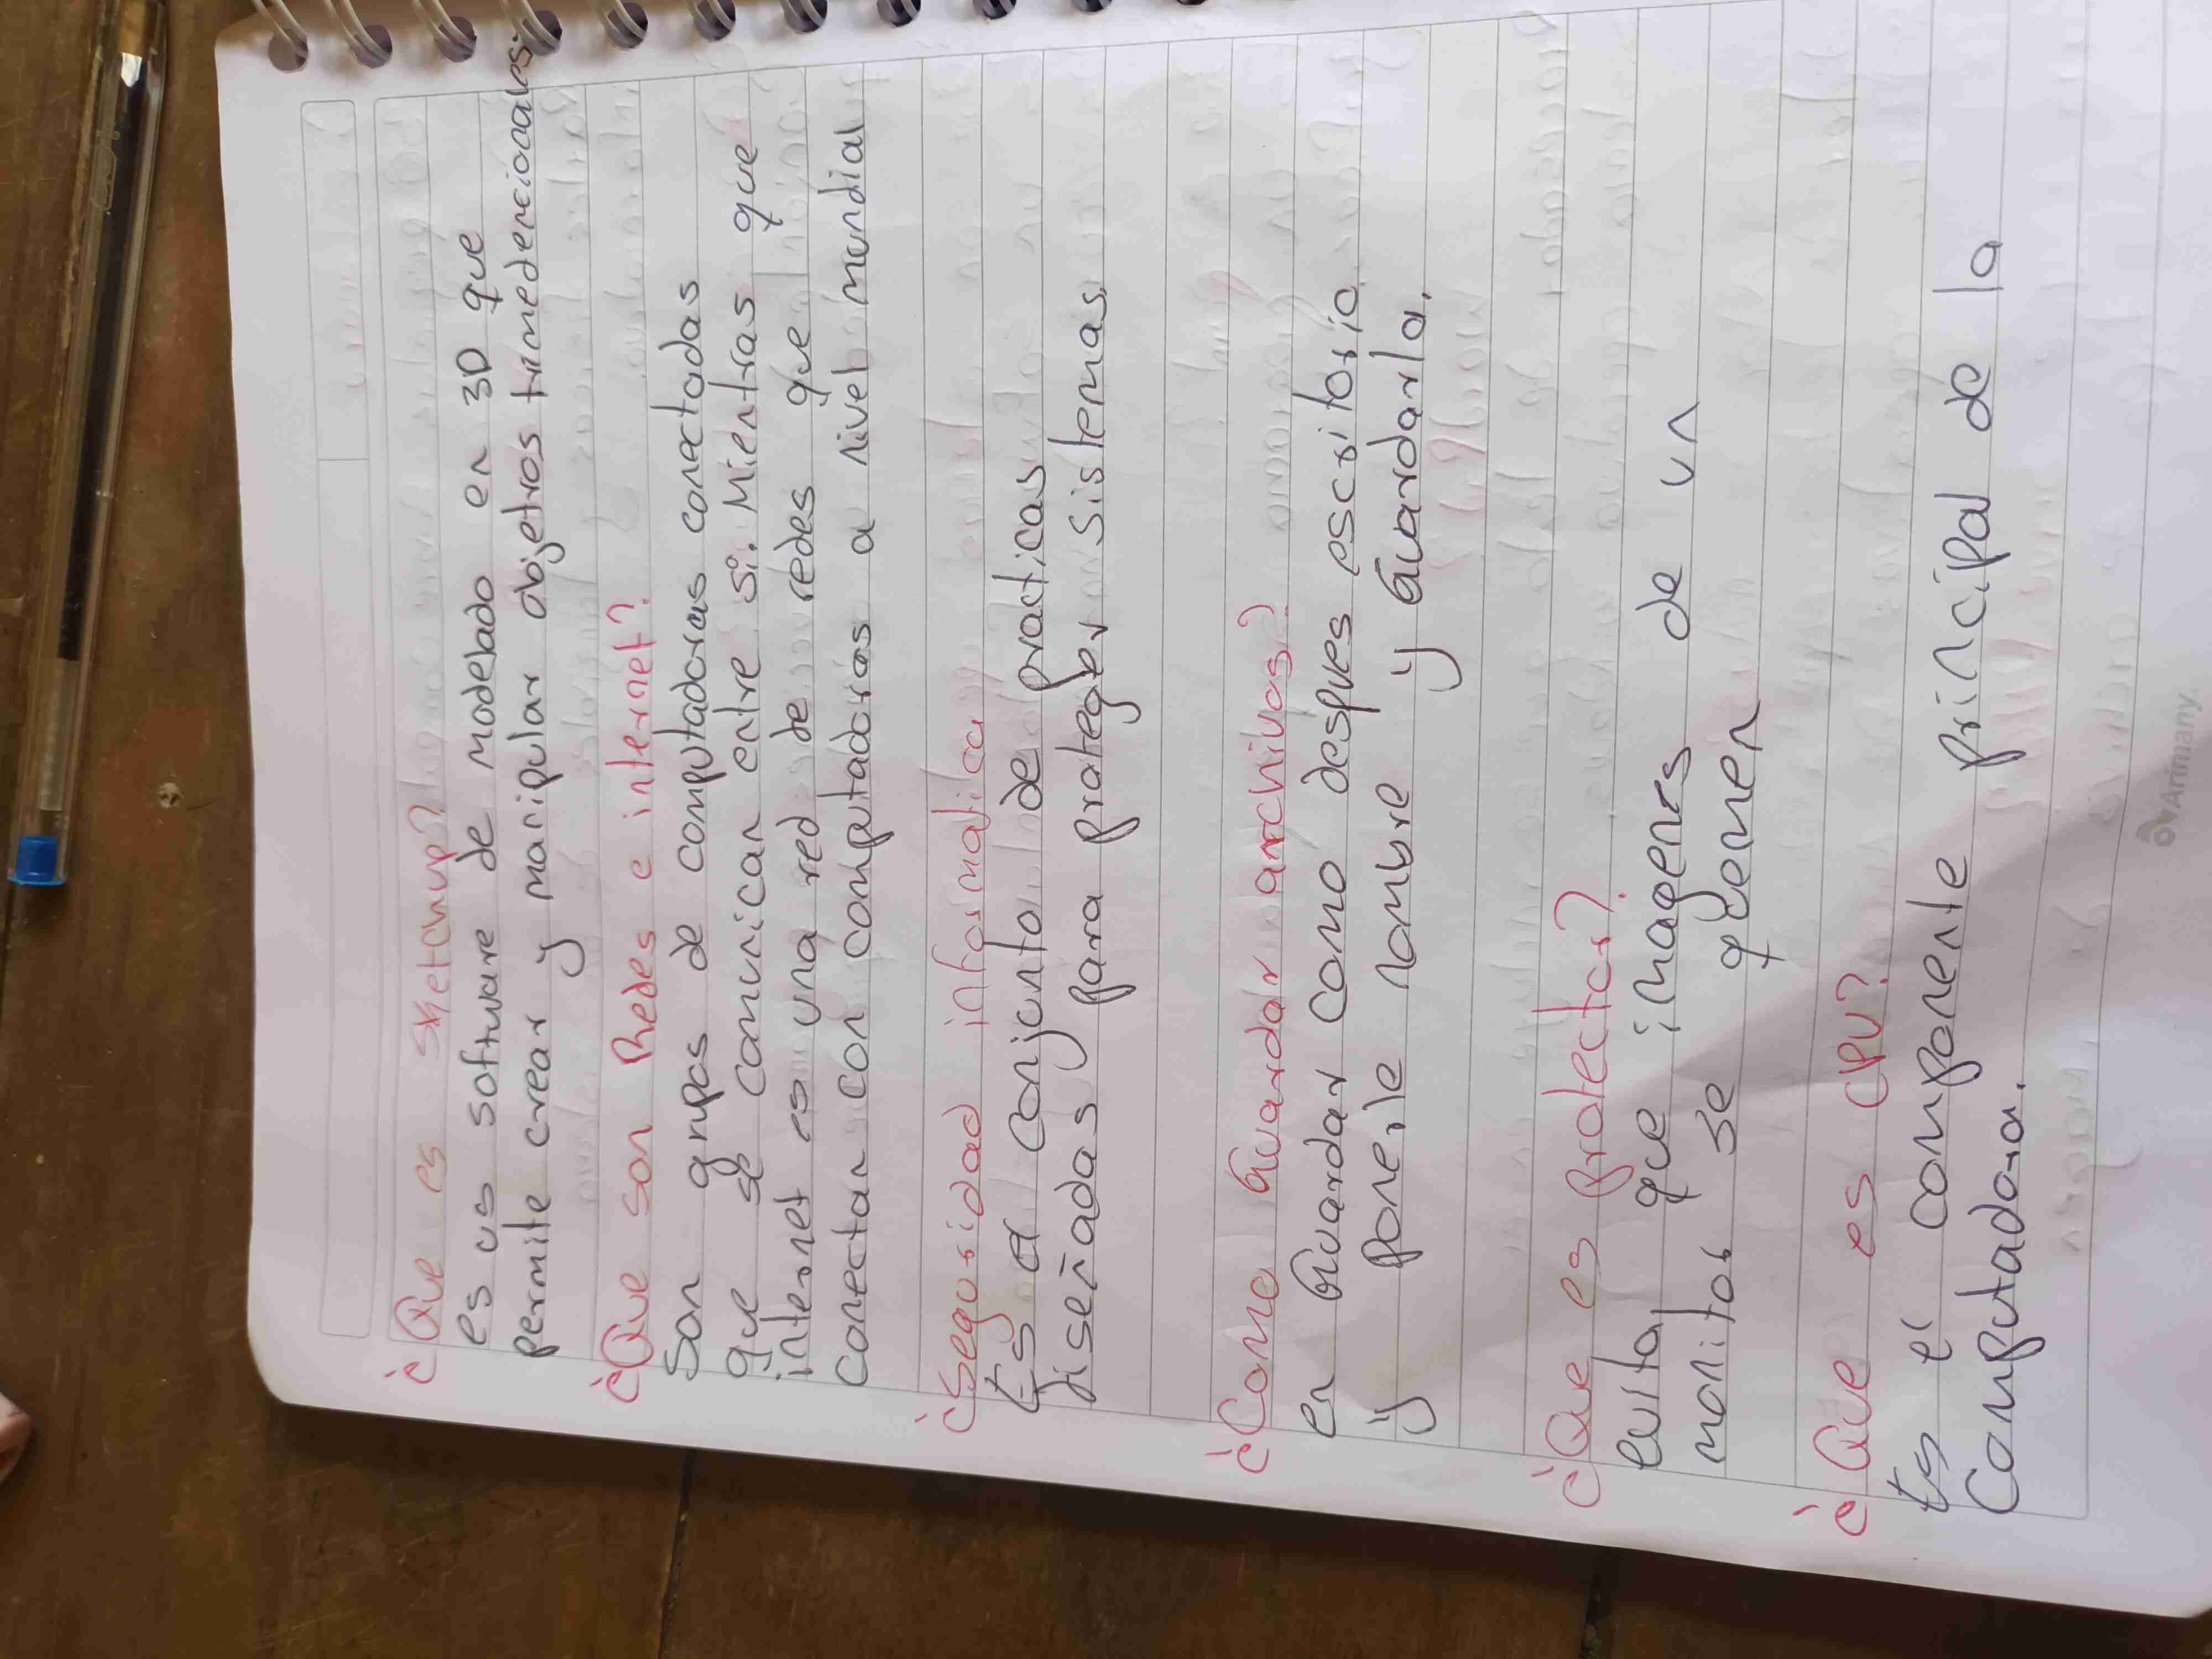 ¿Que es sketchup?
es us software de modelado en 3D que
permite crear y manipular objetros trimedencionales.
¿Que son Redes e internet?
Son grupos de computadoras conectadas
que se comunican entre si. Mientras que
internet es una red de redes que
conectan con computadoras a nivel mundial
¿Seguridad informatica
Es el conjunto de practicas
diseñadas para proteger sistemas.
¿Como Guardar archivos?
en Guardar como despues escritorio
y ponerle nombre y Guardarla.
¿Que es protector?
evita que imagenes de un
monitor se quemen
¿Que es CPU?
Es el componente principal de la
Computadora.
Arimany